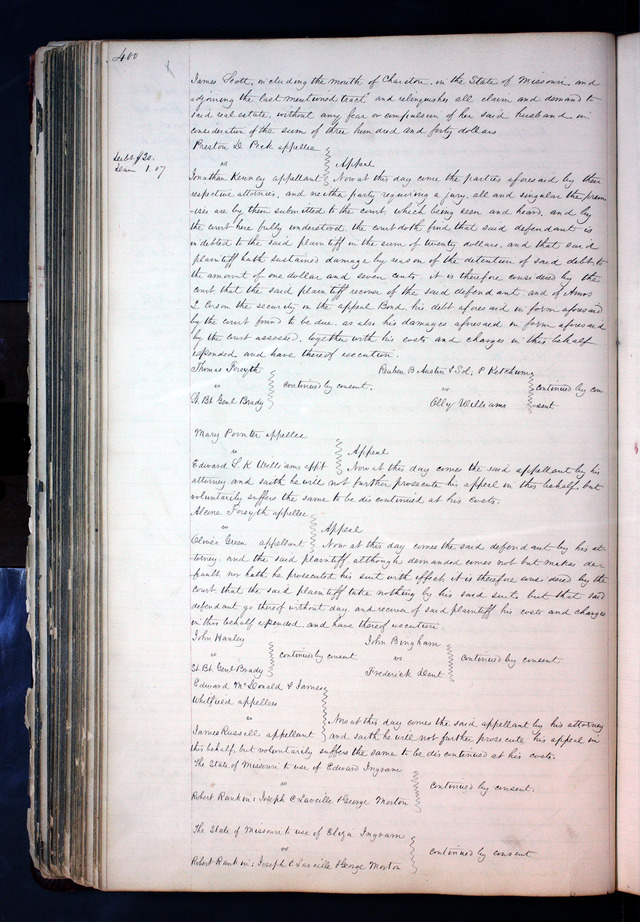 400
James Scott, including the mouth of Chariton, in the State of Missouri and
adjoining the last mentioned tract and relinquishes all claim and demand to
said real estate, without any fear or compulsion of her said husband in
consideration of the sum of three hundred and forty dollars
Preston D. Peck appellee
vs
Appeal
Debt $20.
Dam 1.07
Jonathan Kenney appellant Now at this day come the parties aforesaid by their
respective attornies, and neither party requiring a jury, all and singular the prem
ises are by them submitted to the court which being seen and heard, and by
the court here fully understood, the court doth find that said defendant is
indebted to the said plaintiff in the sum of twenty dollars, and that said
plaintiff hath sustained damage by reason of the detention of said debt, to
the amount of one dollar and seven cents, it is therefore considered by the
court that the said plaintiff recover of the said defendant, and of Amos
L Corson the security in the appeal Bond, his debt aforesaid in form aforesaid
by the court found to be due, as also his damages aforesaid in form aforesaid
by the court assessed, together with his costs and charges in this behalf
expended and have thereof execution.
Thomas Forsyth
vs
St. Bt Genl Brady
continued by consent.
Reuben B Austin & Sol. P Ketchum
vs
Olly Williams
continued by con
sent
Mary Pointer appellee
vs
Appeal
Edward L. K Williams appt Now at this day comes the said appellant by his
attorney and saith he will not further prosecute his appeal in this behalf but
voluntarily suffers the same to be discontinued at his costs.
Alcone Forsyth appellee
vs
Appeal
Oliver Green appellant Now at this day comes the said defendant by his at
torney, and the said plaintiff, although demanded comes not but makes de-
fault nor hath he prosecuted his suit with effect, it is therefore considered by the
court that the said plaintiff take nothing by his said suit, but that said
defendant go thereof without day, and recover of said plaintiff his costs and charges
in this behalf expended, and have thereof execution
John Hanley
vs
St. Bt Genl Brady
continued by consent
John Bingham
vs
Frederick Dent
continued by consent
Edward McDonald & James
Whitfield appellees
vs
Now at this day comes the said appellant by his attorney
James Russell appellant and saith he will not further prosecute his appeal in
this behalf, but voluntarily suffers the same to be discontinued at his costs.
The State of Missouri to use of Edward Ingram
vs
continued by consent.
Robert Rankin; Joseph C Laveille & George Morton
The State of Missouri to use of Eliza Ingram
vs
continued by consent
Robert Rankin; Joseph C Laveille & George Morton